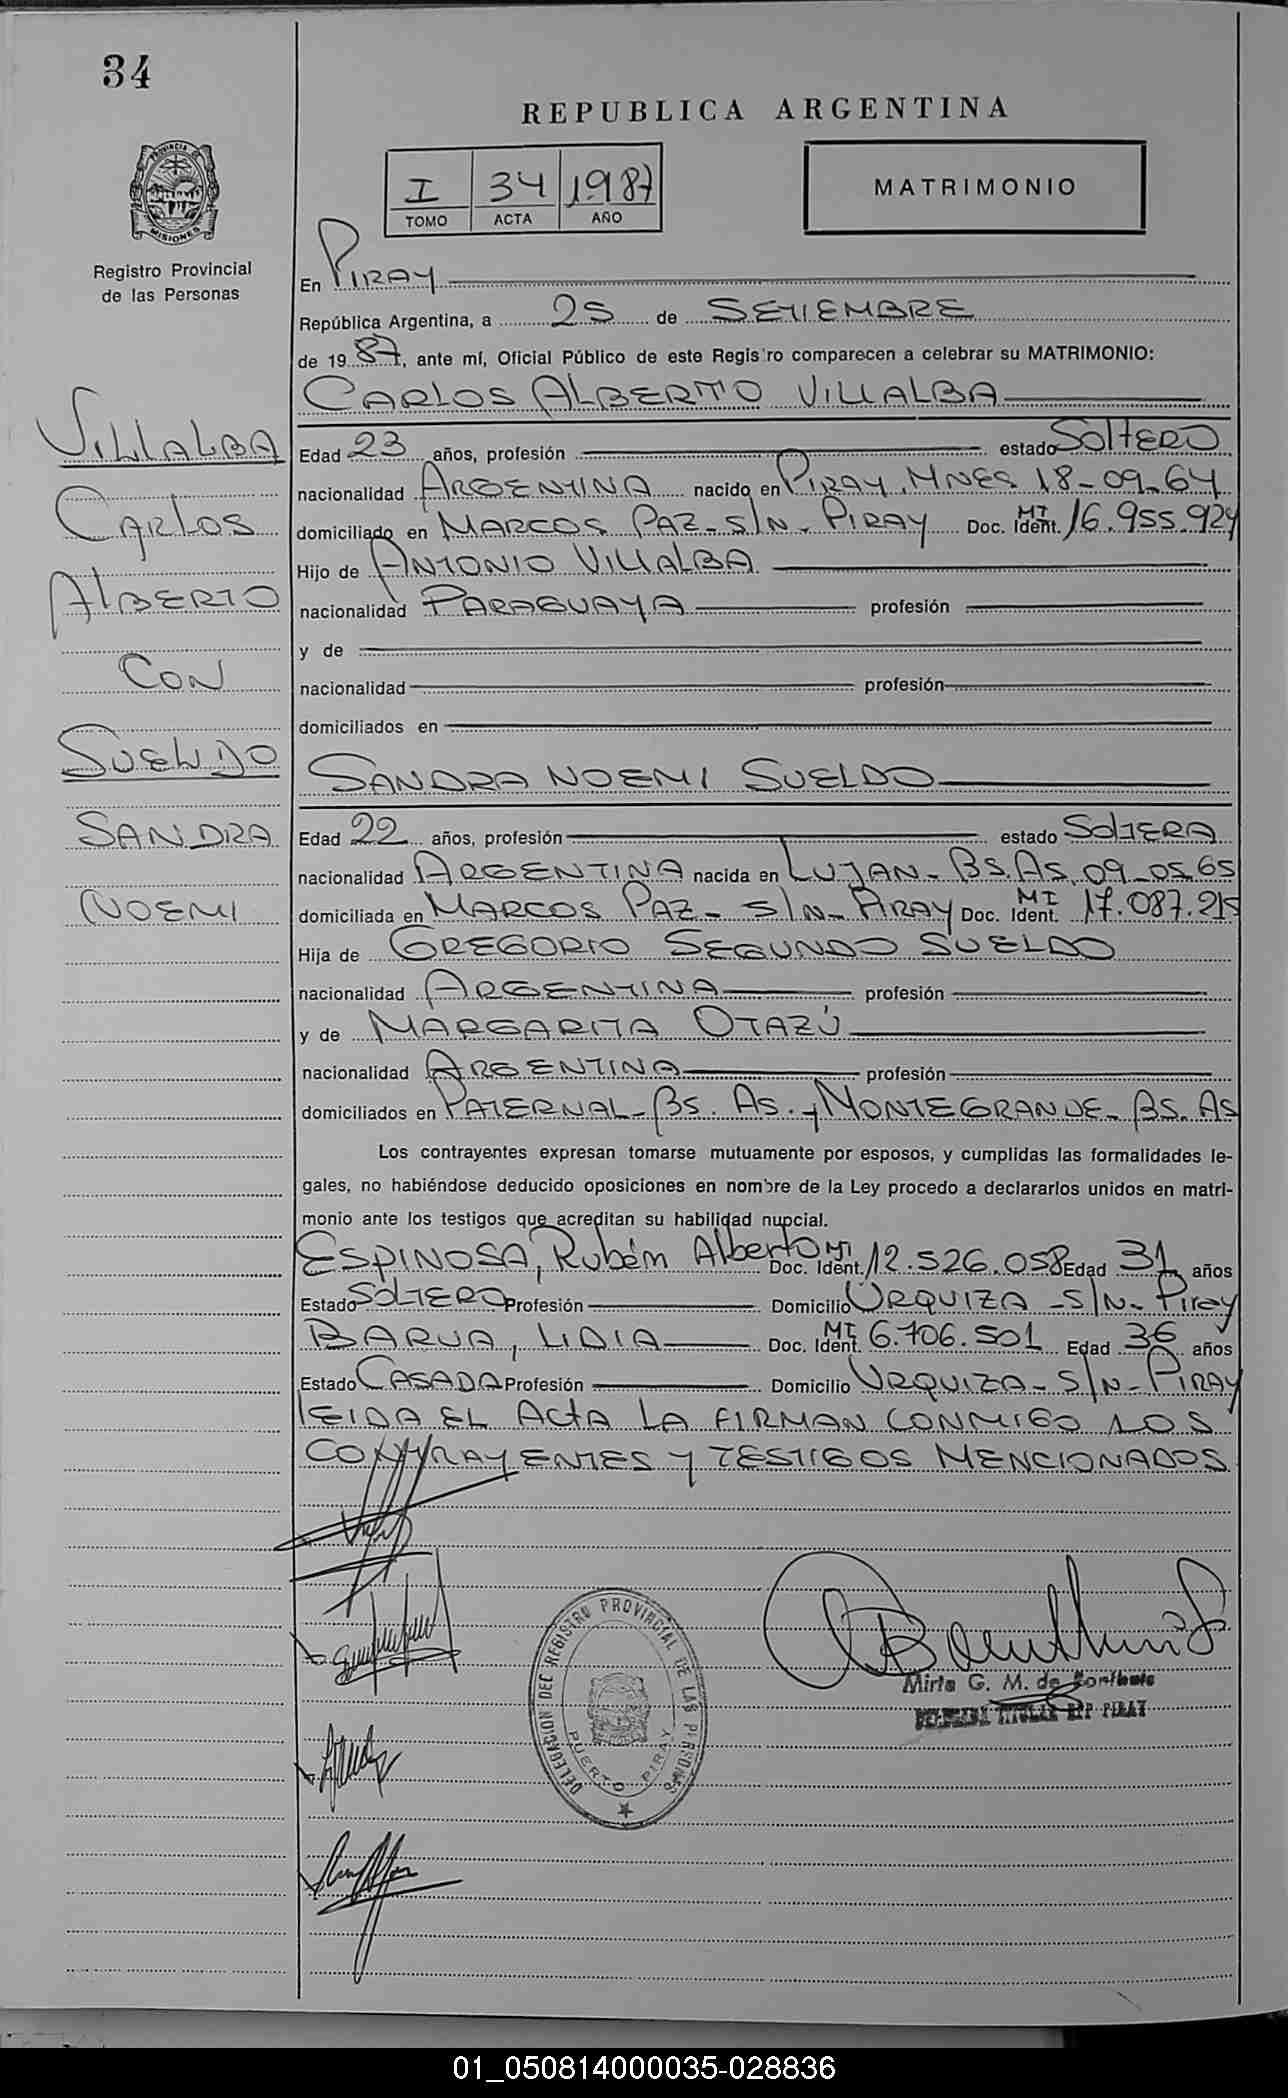 34
REPUBLICA ARGENTINA
I 34 1987
TOMO ACTA AÑO
MATRIMONIO
PROVINCIA DE
MISIONES
Registro Provincial
de las Personas
VILLALBA
CARLOS
ALBERTO
CON
SUELDO
SANDRA
NOEMI
En PIRAY
República Argentina, a 25 de SETIEMBRE
de 1987, ante mí, Oficial Público de este Registro comparecen a celebrar su MATRIMONIO:
CARLOS ALBERTO VILLALBA
Edad 23 años, profesión estado SOLTERO
nacionalidad ARGENTINA nacido en PIRAY, MNES 18-09-64
domiciliado en MARCOS PAZ-S/N-PIRAY Doc. Ident. MI 16.955.924
Hijo de ANTONIO VILLALBA
nacionalidad PARAGUAYA profesión
y de
nacionalidad profesión
domiciliados en
SANDRA NOEMI SUELDO
Edad 22 años, profesión estado SOLTERA
nacionalidad ARGENTINA nacida en LUJAN-BS.AS. 09-05-65
domiciliada en MARCOS PAZ-S/N-PIRAY Doc. Ident. MI 17.087.215
Hija de GREGORIO SEGUNDO SUELDO
nacionalidad ARGENTINA profesión
y de MARGARITA OTAZÚ
nacionalidad ARGENTINA profesión
domiciliados en PATERNAL-BS. AS. y MONTEGRANDE-BS. AS
Los contrayentes expresan tomarse mutuamente por esposos, y cumplidas las formalidades le-
gales, no habiéndose deducido oposiciones en nombre de la Ley procedo a declararlos unidos en matri-
monio ante los testigos que acreditan su habilidad nupcial.
ESPINOSA, Rubém Alberto Doc. Ident. MI 12.526.058 Edad 31 años
Estado SOLTERO Profesión Domicilio URQUIZA-S/N-Piray
BARUA, LIDIA Doc. Ident. MI 6.706.501 Edad 36 años
Estado CASADA Profesión Domicilio URQUIZA-S/N-PIRAY
LEIDA EL ACTA LA FIRMAN CONMIGO LOS
CONTRAYENTES Y TESTIGOS MENCIONADOS
DELEGACION DEL REGISTRO PROVINCIAL DE LAS PERSONAS
PUERTO PIRAY
Mirta G. M. de
DELEGADA TITULAR RPP PIRAY
01_050814000035-028836